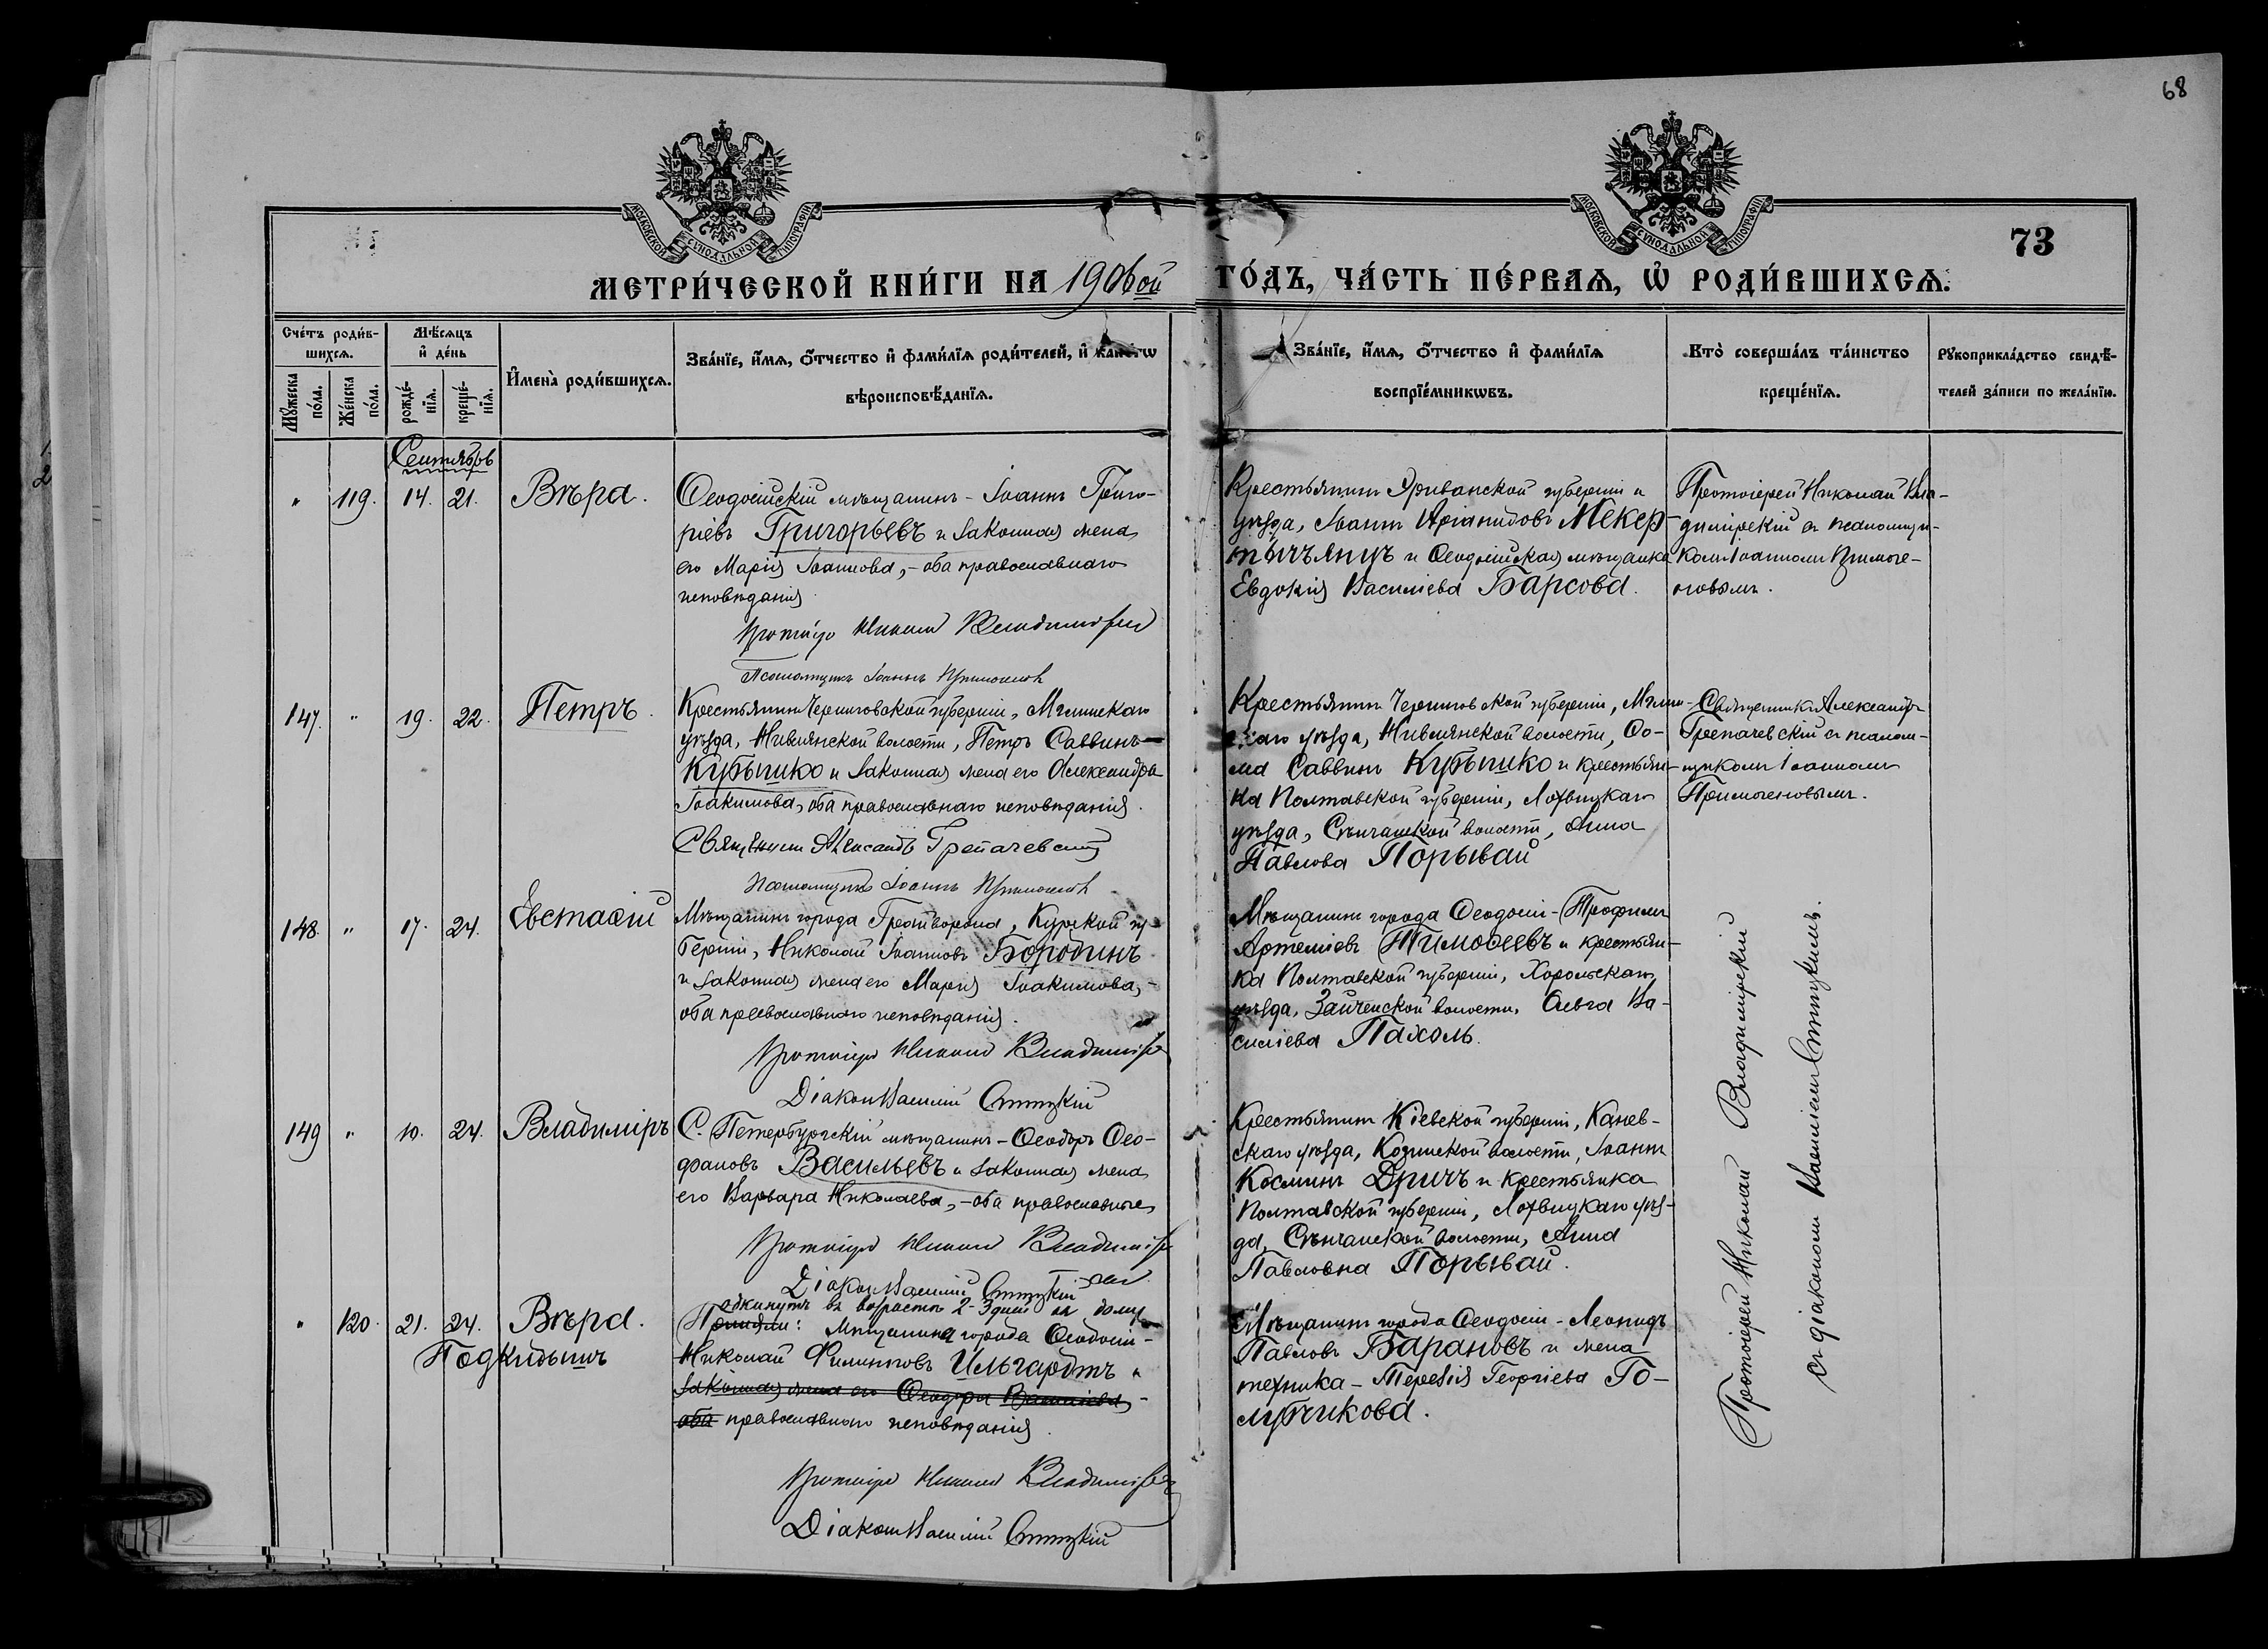 68
МОСКОВСКОЙ СУНОДАЛЬНОЙ ТИПОГРАФІИ
МОСКОВСКОЙ СУНОДАЛЬНОЙ ТИПОГРАФІИ
73
МЕТРИ́ЧЕСКОЙ КНИ́ГИ НА 1906ой ГО́ДЪ, ЧА́СТЬ ПЕ́РВАѦ, Ѡ҆ РОДИ́ВШИХСѦ.
Сче́тъ роди́в-
шихсѧ.
Мꙋ́жеска по́ла.
Же́нска по́ла.
Мѣ́сѧцъ
и҆ де́нь
рожде́-
нїѧ.
креще́-
нїѧ.
И҆мена̀ роди́вшихсѧ.
Зва́нїе, и҆́мѧ, ѻ҆́тчество и҆ фами́лїѧ роди́телей, и҆ какогѡ
вѣроисповѣ́данїѧ.
Зва́нїе, и҆́мѧ, ѻ҆́тчество и҆ фами́лїѧ
воспрїе́мникѡвъ.
Кто̀ соверша́лъ та́инство
креще́нїѧ.
Рꙋкоприкла́дство свидѣ́-
телей за́писи по жела́нїю.
Сентябрь
" 119. 14. 21. Вѣра.
Ѳеодосійскій мѣщанинъ - Іоаннъ Григо-
рiевъ Григорьевъ и законная жена
его Марія Іоаннова, - оба православнаго
исповѣданія
Протоіер Николай Владимірскій
Псаломщикъ Іоаннъ
Крестьянинъ Эриванской губерніи и
уѣзда, Іоаннъ Мекер-
тычъянцъ и Ѳеодосійская мѣщанка
Евдокія Василіева Барсова.
Протоіерей Николай Вла-
димірскій съ псаломщи-
комъ Іоанномъ Примоче-
новымъ.
147. " 19. 22. Петръ.
Крестьянинъ Черниговской губерніи, Мглинскаго
уѣзда, Нивлянской волости, Петръ Саввинъ
Кубышко и законная жена его Александра
Іоакимова, оба православнаго исповѣданія.
Священникъ Александръ Грепачевскій
Псаломщикъ Іоаннъ
Крестьянинъ Черниговской губерніи, Мглин-
скаго уѣзда, Нивлянской волости, Ѳо-
ма Саввинъ Кубышко и крестьян-
ка Полтавской губерніи, Лохвицкаго
уѣзда, Сѣнчанской волости, Анна
Павлова Порывай
Священникъ Александръ
Грепачевскій съ псалом-
щикомъ Іоанномъ
Примоченовымъ.
148. " 17. 24. Евстафій
Мѣщанинъ города Грайворона, Курской гу-
берніи, Николай Іоанновъ Бородинъ
и законная жена его Марія Іоакимова, -
оба православнаго исповѣданія.
Протоіер Николай Владимірскій
Діаконъ Василій Ститскій
Мѣщанинъ города Ѳеодосіи - Трофимъ
Артеміевъ Тимоѳеевъ и крестьян-
ка Полтавской губерніи, Хорольскаго
уѣзда, Зайченской волости, Ольга Ва-
силіева Пахоль.
149 " 10. 24. Владиміръ
С. Петербургскій мѣщанинъ - Ѳеодоръ Ѳео-
фановъ Васильевъ и законная жена
его Варвара Николаева, - оба православные
Протоіер Николай Владимірскій
Діаконъ Василій
Крестьянинъ Кіевской губерніи, Канев-
скаго уѣзда, Козинской волости, Іоаннъ
Косминъ Дричъ и крестьянка
Полтавской губерніи, Лохвицкаго уѣз-
да, Сѣнчанской волости, Анна
Павловна Порывай.
" 120. 21. 24. Вѣра.
Подкидышъ
одкинутъ въ возрастѣ 2-3 дней къ дому
Мѣщанина города Ѳеодосіи -
Николай Филипповъ Ильгардтъ и
законная жена его Ѳеодора Василіева -
оба православнаго исповѣданія.
Протоіер Николай Владимірскій
Діаконъ Василій
Мѣщанинъ города Ѳеодосіи - Леонидъ
Павловъ Барановъ и жена
техника - Терезія Георгіева Го-
лубчикова.
Протоіерей Николай Владимірскій
съ діакономъ Василіемъ